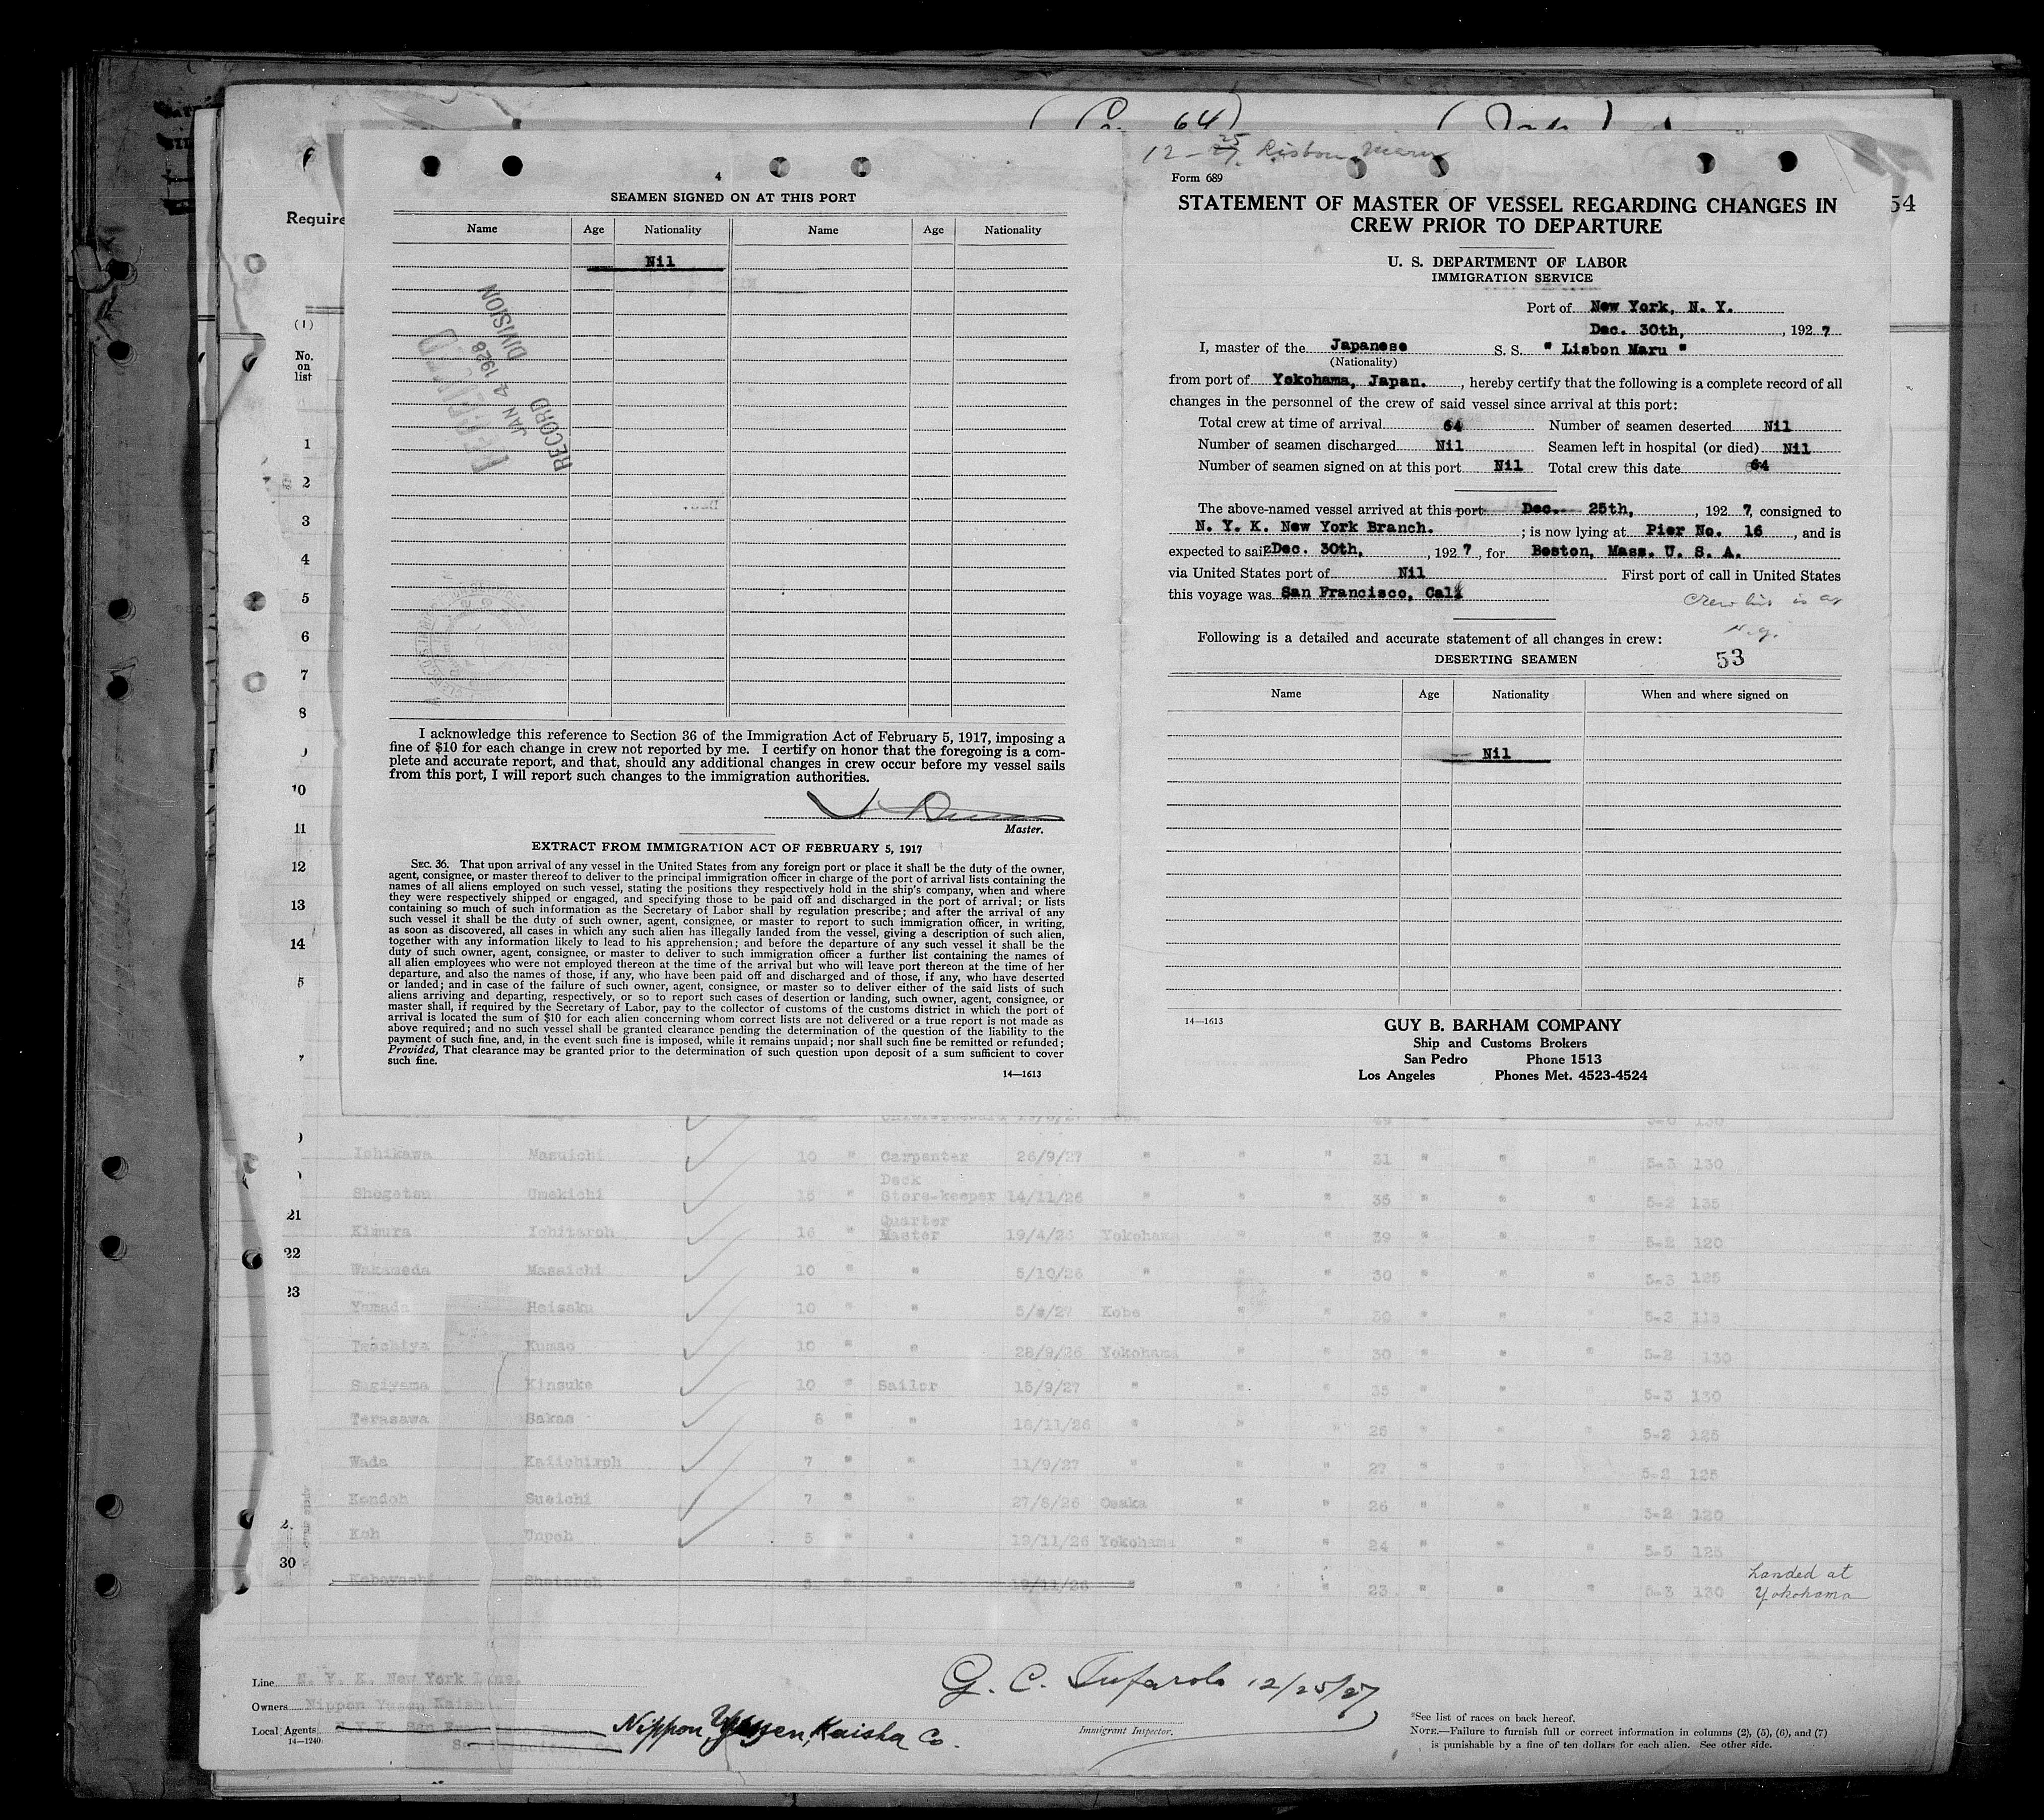 12-25 Lisbon Maru
4
SEAMEN SIGNED ON AT THIS PORT
Name Age Nationality Name Age Nationality
Nil
JAN 4 1928
RECORD DIVISION
I acknowledge this reference to Section 36 of the Immigration Act of February 5, 1917, imposing a
fine of $10 for each change in crew not reported by me. I certify on honor that the foregoing is a com-
plete and accurate report, and that, should any additional changes in crew occur before my vessel sails
from this port, I will report such changes to the immigration authorities.
Master.
EXTRACT FROM IMMIGRATION ACT OF FEBRUARY 5, 1917
SEC. 36. That upon arrival of any vessel in the United States from any foreign port or place it shall be the duty of the owner,
agent, consignee, or master thereof to deliver to the principal immigration officer in charge of the port of arrival lists containing the
names of all aliens employed on such vessel, stating the positions they respectively hold in the ship's company, when and where
they were respectively shipped or engaged, and specifying those to be paid off and discharged in the port of arrival; or lists
containing so much of such information as the Secretary of Labor shall by regulation prescribe; and after the arrival of any
such vessel it shall be the duty of such owner, agent, consignee, or master to report to such immigration officer, in writing,
as soon as discovered, all cases in which any such alien has illegally landed from the vessel, giving a description of such alien,
together with any information likely to lead to his apprehension; and before the departure of any such vessel it shall be the
duty of such owner, agent, consignee, or master to deliver to such immigration officer a further list containing the names of
all alien employees who were not employed thereon at the time of the arrival but who will leave port thereon at the time of her
departure, and also the names of those, if any, who have been paid off and discharged and of those, if any, who have deserted
or landed; and in case of the failure of such owner, agent, consignee, or master so to deliver either of the said lists of such
aliens arriving and departing, respectively, or so to report such cases of desertion or landing, such owner, agent, consignee, or
master shall, if required by the Secretary of Labor, pay to the collector of customs of the customs district in which the port of
arrival is located the sum of $10 for each alien concerning whom correct lists are not delivered or a true report is not made as
above required; and no such vessel shall be granted clearance pending the determination of the question of the liability to the
payment of such fine, and, in the event such fine is imposed, while it remains unpaid; nor shall such fine be remitted or refunded;
Provided, That clearance may be granted prior to the determination of such question upon deposit of a sum sufficient to cover
such fine.
14—1613
Form 689
STATEMENT OF MASTER OF VESSEL REGARDING CHANGES IN
CREW PRIOR TO DEPARTURE
54
U. S. DEPARTMENT OF LABOR
IMMIGRATION SERVICE
Port of New York, N. Y.
Dec. 30th, , 192 7
I, master of the Japanese S. S. " Lisbon Maru "
(Nationality)
from port of Yokohama, Japan. , hereby certify that the following is a complete record of all
changes in the personnel of the crew of said vessel since arrival at this port:
Total crew at time of arrival 64 Number of seamen deserted Nil
Number of seamen discharged Nil Seamen left in hospital (or died) Nil
Number of seamen signed on at this port Nil Total crew this date 64
The above-named vessel arrived at this port Dec. 25th, , 192 7, consigned to
N. Y. K. New York Branch. ; is now lying at Pier No. 16 , and is
expected to sail Dec. 30th, , 192 7 , for Boston, Mass. U. S. A.
via United States port of Nil First port of call in United States
this voyage was San Francisco, Cali
Crew list is at
N.Y.
Following is a detailed and accurate statement of all changes in crew:
DESERTING SEAMEN 53
Name Age Nationality When and where signed on
Nil
14—1613
GUY B. BARHAM COMPANY
Ship and Customs Brokers
San Pedro Phone 1513
Los Angeles Phones Met. 4523-4524
Require
(1)
No.
on
list
1
2
3
4
5
6
7
8
10
11
12
13
14
5
Ichikawa Masuichi 10 " Carpenter 26/9/27 " " " 31 " " " 5-3 130
Shogetsu Umekichi 15 " Deck Store-keeper 14/11/26 " " " 35 " " " 5-2 135
21 Kimura Ichitaroh 16 " Quarter Master 19/4/26 Yokohama " " 39 " " " 5-2 120
22 Wakameda Masaichi 10 " " 5/10/26 " " " 30 " " " 5-3 125
23 Yamada Heisaku 10 " " Kobe " " 30 " " " 5-2 115
Tsuchiya Kumao 10 " " 28/9/26 Yokohama " " 30 " " " 5-2 130
Sugiyama Kinsuke 10 " Sailor 15/9/27 " " " 35 " " " 5-3 130
Terasawa Sakae 8 " " 18/11/26 " " " 26 " " " 5-2 125
Wada Kaiichiroh 7 " " 11/9/27 " " " 27 " " " 5-2 125
Kendoh Sueichi 7 " " 27/8/26 Osaka " " 26 " " " 5-2 120
Koh Unpoh 5 " " 19/11/26 Yokohama " " 24 " " " 5-5 125
30 Kobayashi Shotaroh " " 19/11/26 " " " 23 " " " 5-3 130 Landed at
Yokohama
Line N. Y. K. New York Line.
Owners Nippon Yusen Kaisha
Local Agents Nippon Yusen Kaisha Co.
14—1240
G. C. Tufarolo 12/25/27
Immigrant Inspector.
*See list of races on back hereof.
NOTE.—Failure to furnish full or correct information in columns (2), (5), (6), and (7)
is punishable by a fine of ten dollars for each alien. See other side.